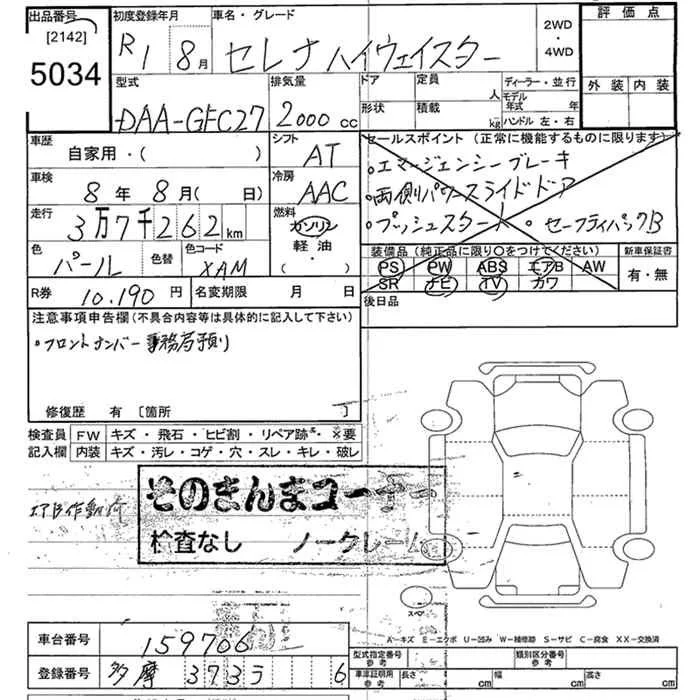 出品番号
[2142]
5034
初度登録年月
R1 8月
車名・グレード
セレナハイウェイスター
2WD
・
4WD
評価点
外装 内装
型式
DAA-GFC27
排気量
2000 cc
ドア
形状
定員 人
積載 kg
ディーラー・並行
モデル年式 年
ハンドル 左・右
車歴
自家用・( )
シフト
AT
車検
8年 8月( 日)
冷房
AAC
走行
3万7千262 km
燃料
ガソリン
軽油・
( )
色
パール
色替
色コード
XAM
セールスポイント (正常に機能するものに限ります)
・エマージェンシーブレーキ
・両側パワースライドドア
・プッシュスタート ・セーフティパックB
装備品 (純正品に限り○をつけてください)
PS PW ABS エアB AW
SR ナビ TV カワ
新車保証書
有・無
R券 10,190円
名変期限 月 日
後日品
注意事項申告欄(不具合内容等は具体的に記入して下さい)
・フロントナンバー事務局預り
修復歴 有 [箇所 ]
検査員 FW キズ・飛石・ヒビ割・リペア跡・×要
記入欄 内装 キズ・汚レ・コゲ・穴・スレ・キレ・破レ
そのまんまコーナー
検査なし ノークレーム
スペア
A-キズ E-エクボ U-凹み W-補修跡 S-サビ C-腐食 XX-交換済
車台番号 159706
登録番号 多摩 373
型式指定番号 参考
類別区分番号 参考
車庫証明用 参考
長さ cm 幅 cm 高さ cm